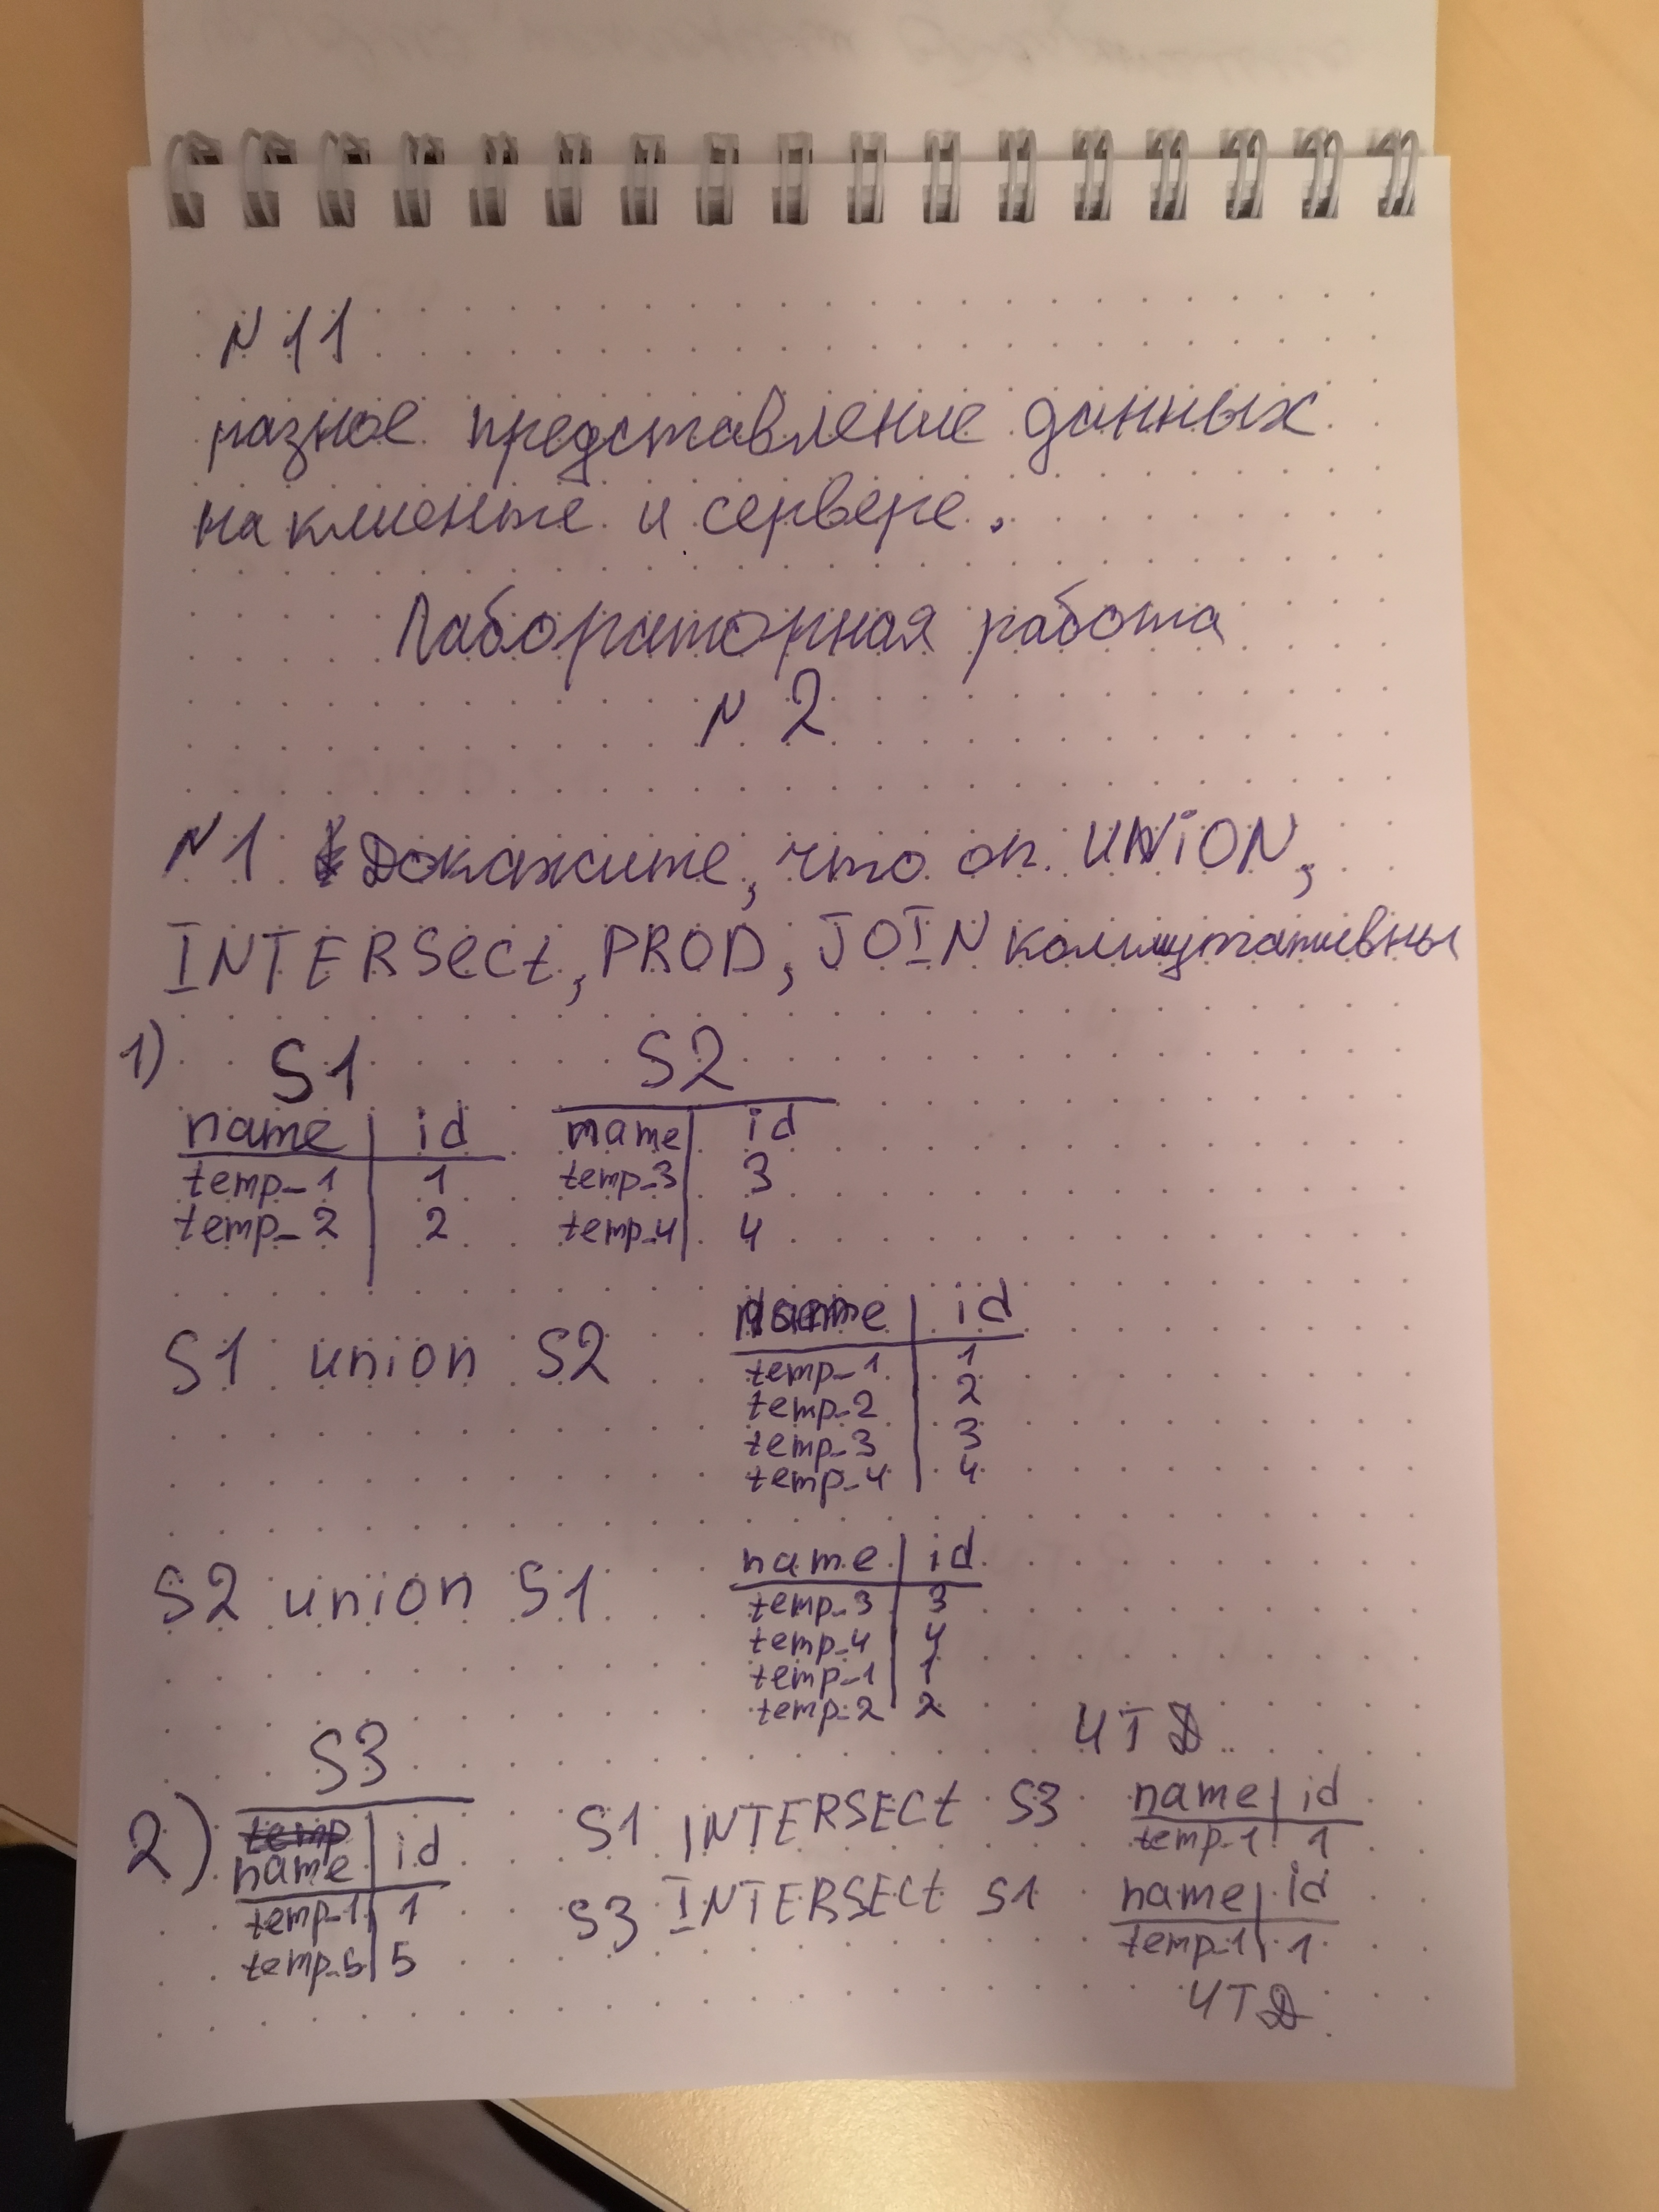 N 11
разное представление данных
на клиенте и сервере.
Лабораторная работа
N 2
N1 Докажите, что оп. UNION,
INTERSect, PROD, JOIN коммутативны
1) S1 S2
name id name id
temp_1 1 temp_3 3
temp_2 2 temp_4 4
S1 union S2 name id
temp_1 1
temp_2 2
temp_3 3
temp_4 4
S2 union S1 name id
temp_3 3
temp_4 4
temp_1 1
temp_2 2
ЧТД
2) S3
temp
name id
temp_1 1
temp_5 5
S1 INTERSECt S3 name id
temp_1 1
S3 INTERSECt S1 name id
temp_1 1
ЧТД